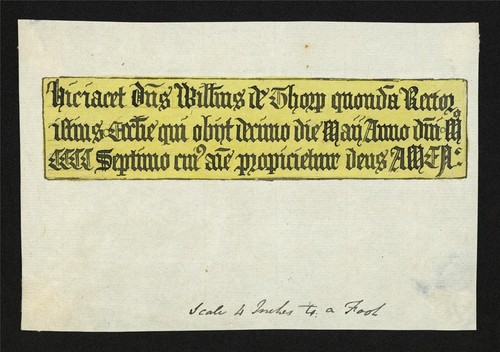 Hic iacet Dn̄s Willm̄s de Thorp quond̄a Rector
istius Eccl̄ie qui obijt decimo die Maij Anno dn̄i Mº
CCCC Septimo cui⁹ āie propicietur deus AMEN
Scale 4 Inches to a Foot